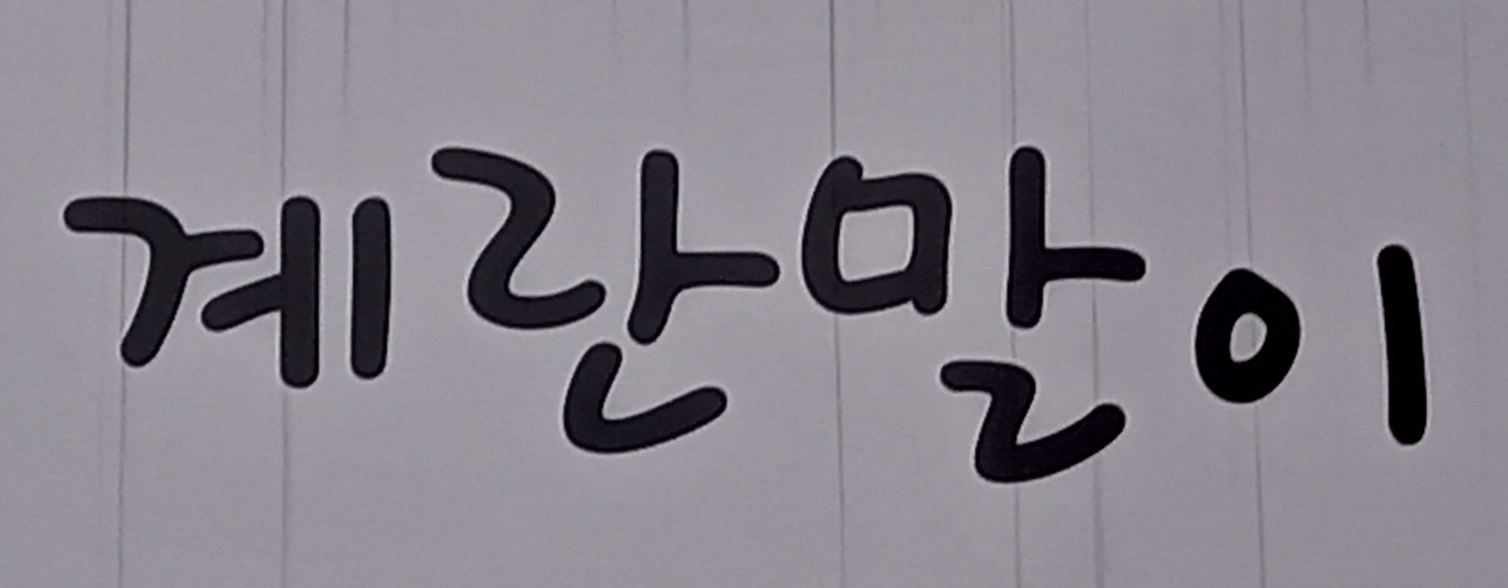 계란말이